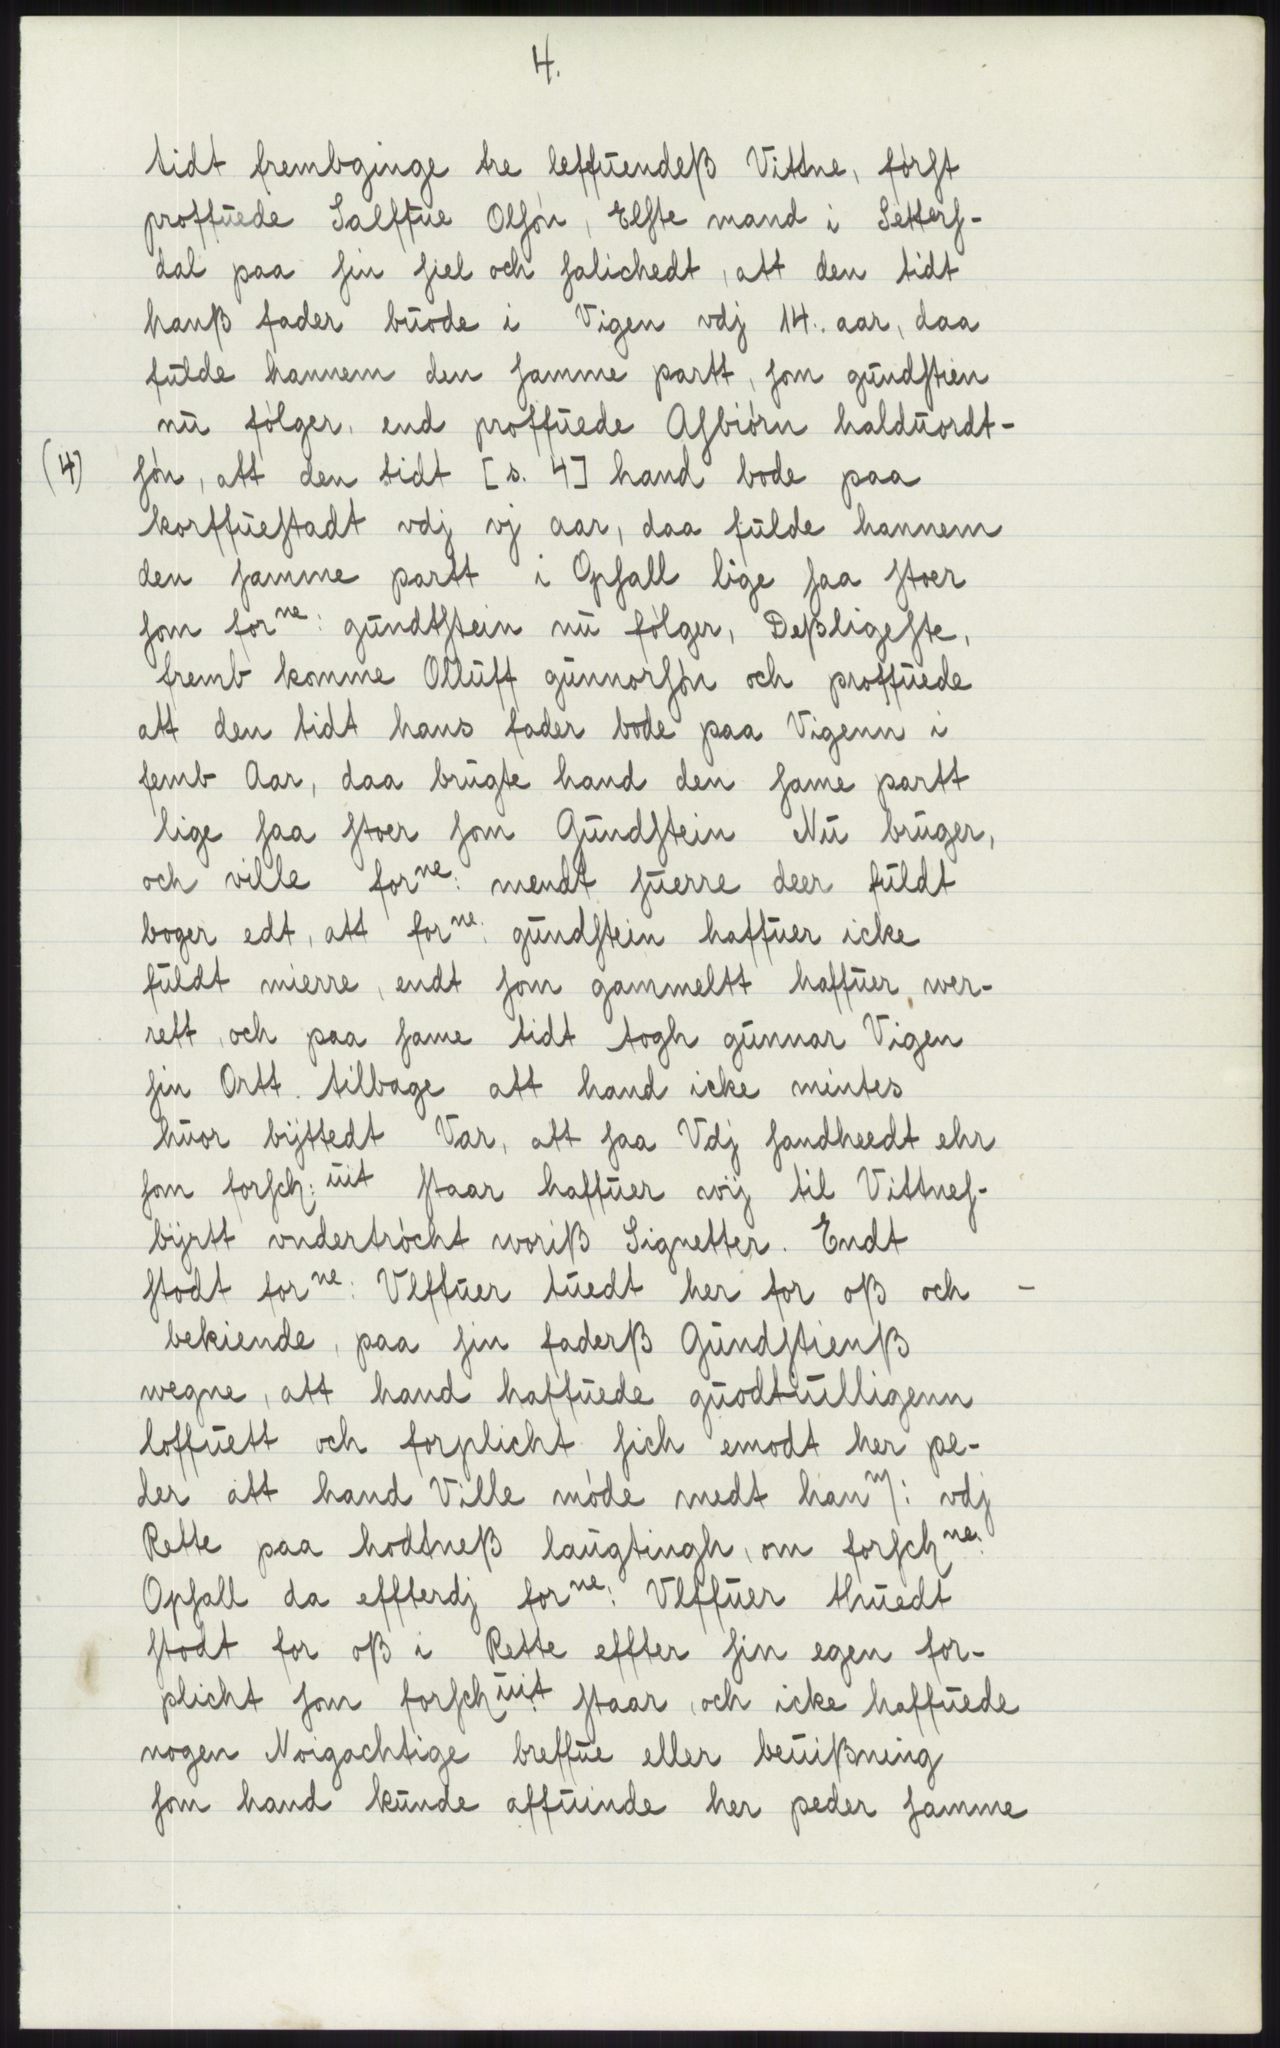 4.
tidt frembginge tre leffuendeß Vittne, først
proffuede Salffue Olsøn, Elste mand i Setters-
dal paa sin siel och salichedt, att den tidt
hanß fader buode i Vigen vdj 14. aar, daa
fulde hannem den samme partt, som gundstien
nu følger, end proffuede Asbiørn halduordt-
(4) søn, att den tidt [s. 4] hand bode paa
korffuestadt vdj vj aar, daa fulde hannem
den samme partt i Opsall lige saa stoer
som forne: gundtstein nu følger, Deßligeste,
fremb komme Olluff gunnorsøn och proffuede
att den tidt hans fader bode paa Vigenn i
femb Aar, daa brugte hand den same partt
lige saa stoer som Gundstein Nu bruger,
och ville forne: mendt suerre deer fuldt
boger edt, att forne: gundstein haffuer icke
fuldt mierre, endt som gammeltt haffuer wer-
rett, och paa same tidt togh gunnar Vigen
sin Ortt tilbage att hand icke mintes
huor bÿttedt Var, att saa Vdj sandheedt ehr
som forsch: uit staar haffuer wij til Vittnes-
bÿrtt vndertrøcht woriß Signetter. Endt
stodt forne: Vlffuer tuedt her for oß och –
bekiende, paa sin faderß Gundstienß
wegne, att hand haffuede guodtuilligenn
loffuett och forplicht sich emodt her pe-
der att hand Ville møde medt hanm: vdj
Rette paa hodtneß laugtingh, om forschne:
Opsall da effterdj forne: Vlffuer thuedt
stodt for oß i Rette effter sin egen for-
plicht som forschuit: staar, och icke haffuede
nogen Noigachtige breffue eller beuißning
som hand kunde affuinde her peder samme